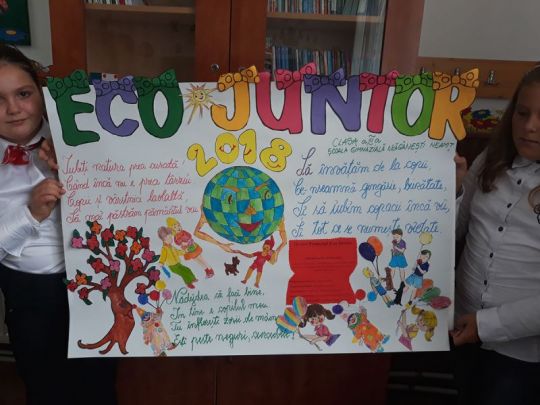 ECO JUNIOR
2018
CLASA a III a
ȘCOALA GIMNAZIALĂ NEAMȚ
Iubiți natura prea curată,
Până încă nu e prea târziu
Copii și vârstnici laolaltă,
Să mai păstrăm pământul viu
Să învățăm de la copii,
Ce-nseamnă gingășie, bunătate,
Și să iubim copacii încă vii,
Și tot ce se numește viețate.
Nădejdea să faci bine,
În tine e copilul meu
Tu înflorești zorii de mâine
Ești peste negură, curcubeu!